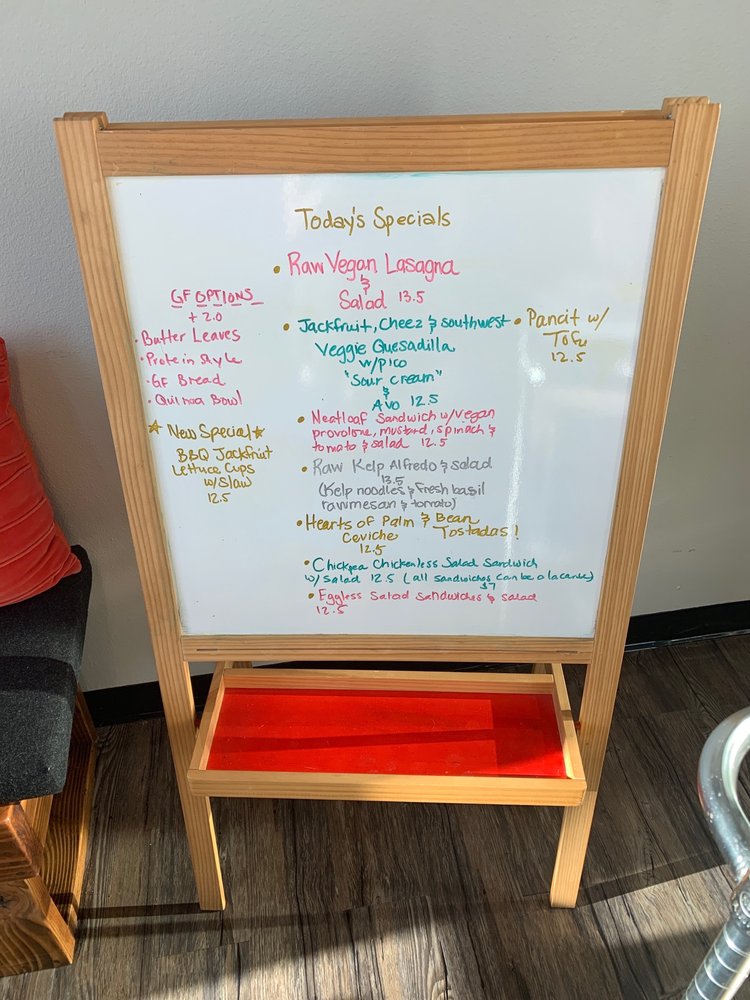 Today's Specials
• Raw Vegan Lasagna
&
Salad 13.5
• Jackfruit, Cheez & southwest
Veggie Quesadilla
w/pico
"Sour cream"
&
Avo 12.5
• Neatloaf Sandwich w/vegan
provolone, mustard, spinach &
tomato & salad 12.5
• Raw Kelp Alfredo & salad
13.5
(Kelp noodles & fresh basil
rawmesan & tomato)
• Hearts of Palm & Bean
Ceviche Tostadas!
12.5
• Chickpea Chickenless Salad Sandwich
w/salad 12.5 (all sandwiches can be a lacarte)
$7
• Eggless Salad Sandwiches & salad
12.5
GF OPTIONS
+ 2.0
• Butter Leaves
• Protein Style
• GF Bread
• Quinoa Bowl
☆ New Special ☆
BBQ Jackfruit
Lettuce Cups
w/Slaw
12.5
• Pancit w/
Tofu
12.5